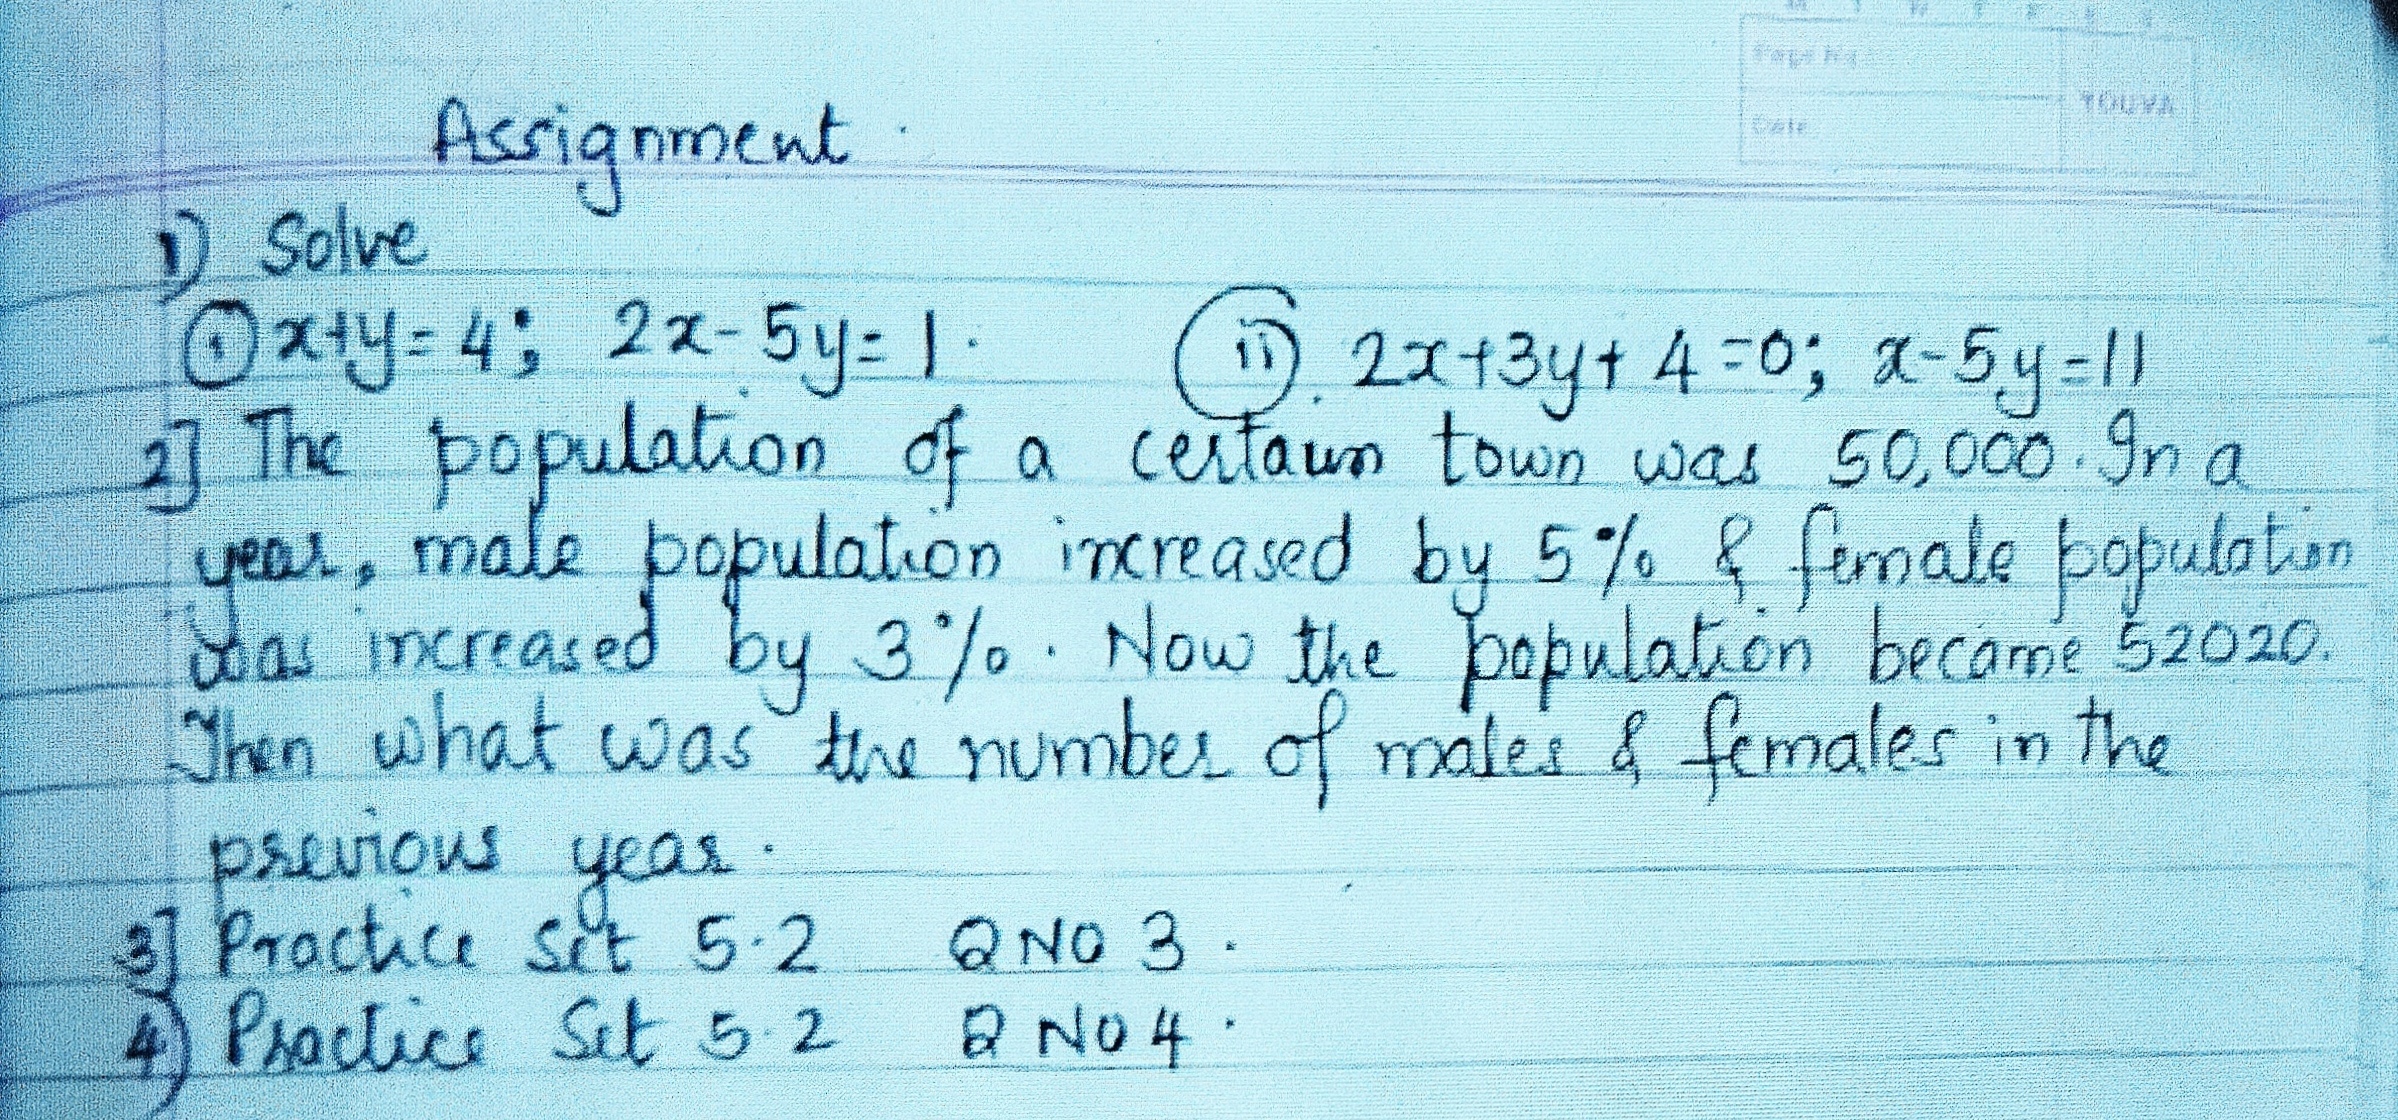 Page No
Date
YOUVA
Assignment.
1) Solve
(i) x+y=4; 2x-5y=1. (ii). 2x+3y+4=0; x-5y=11
2] The population of a certain town was 50,000. In a
year, male population increased by 5% & female population
was increased by 3%. Now the population became 52020.
Then what was the number of males & females in the
previous year.
3] Practice Set 5.2 Q NO 3.
4) Practice Set 5.2 Q NO 4.